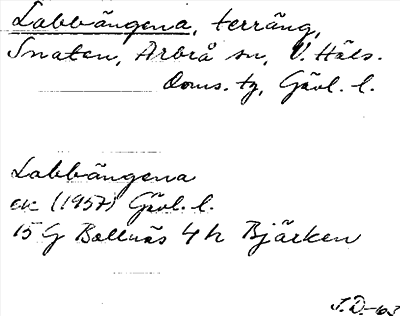 Labbängena, terräng,
Snaten, Arbrå sn, V. Häls.
Doms. tg, Gävl. l.
Labbängena
ek (1957) Gävl. l.
15 G Bollnäs 4 h Bjärken
J.D.-63